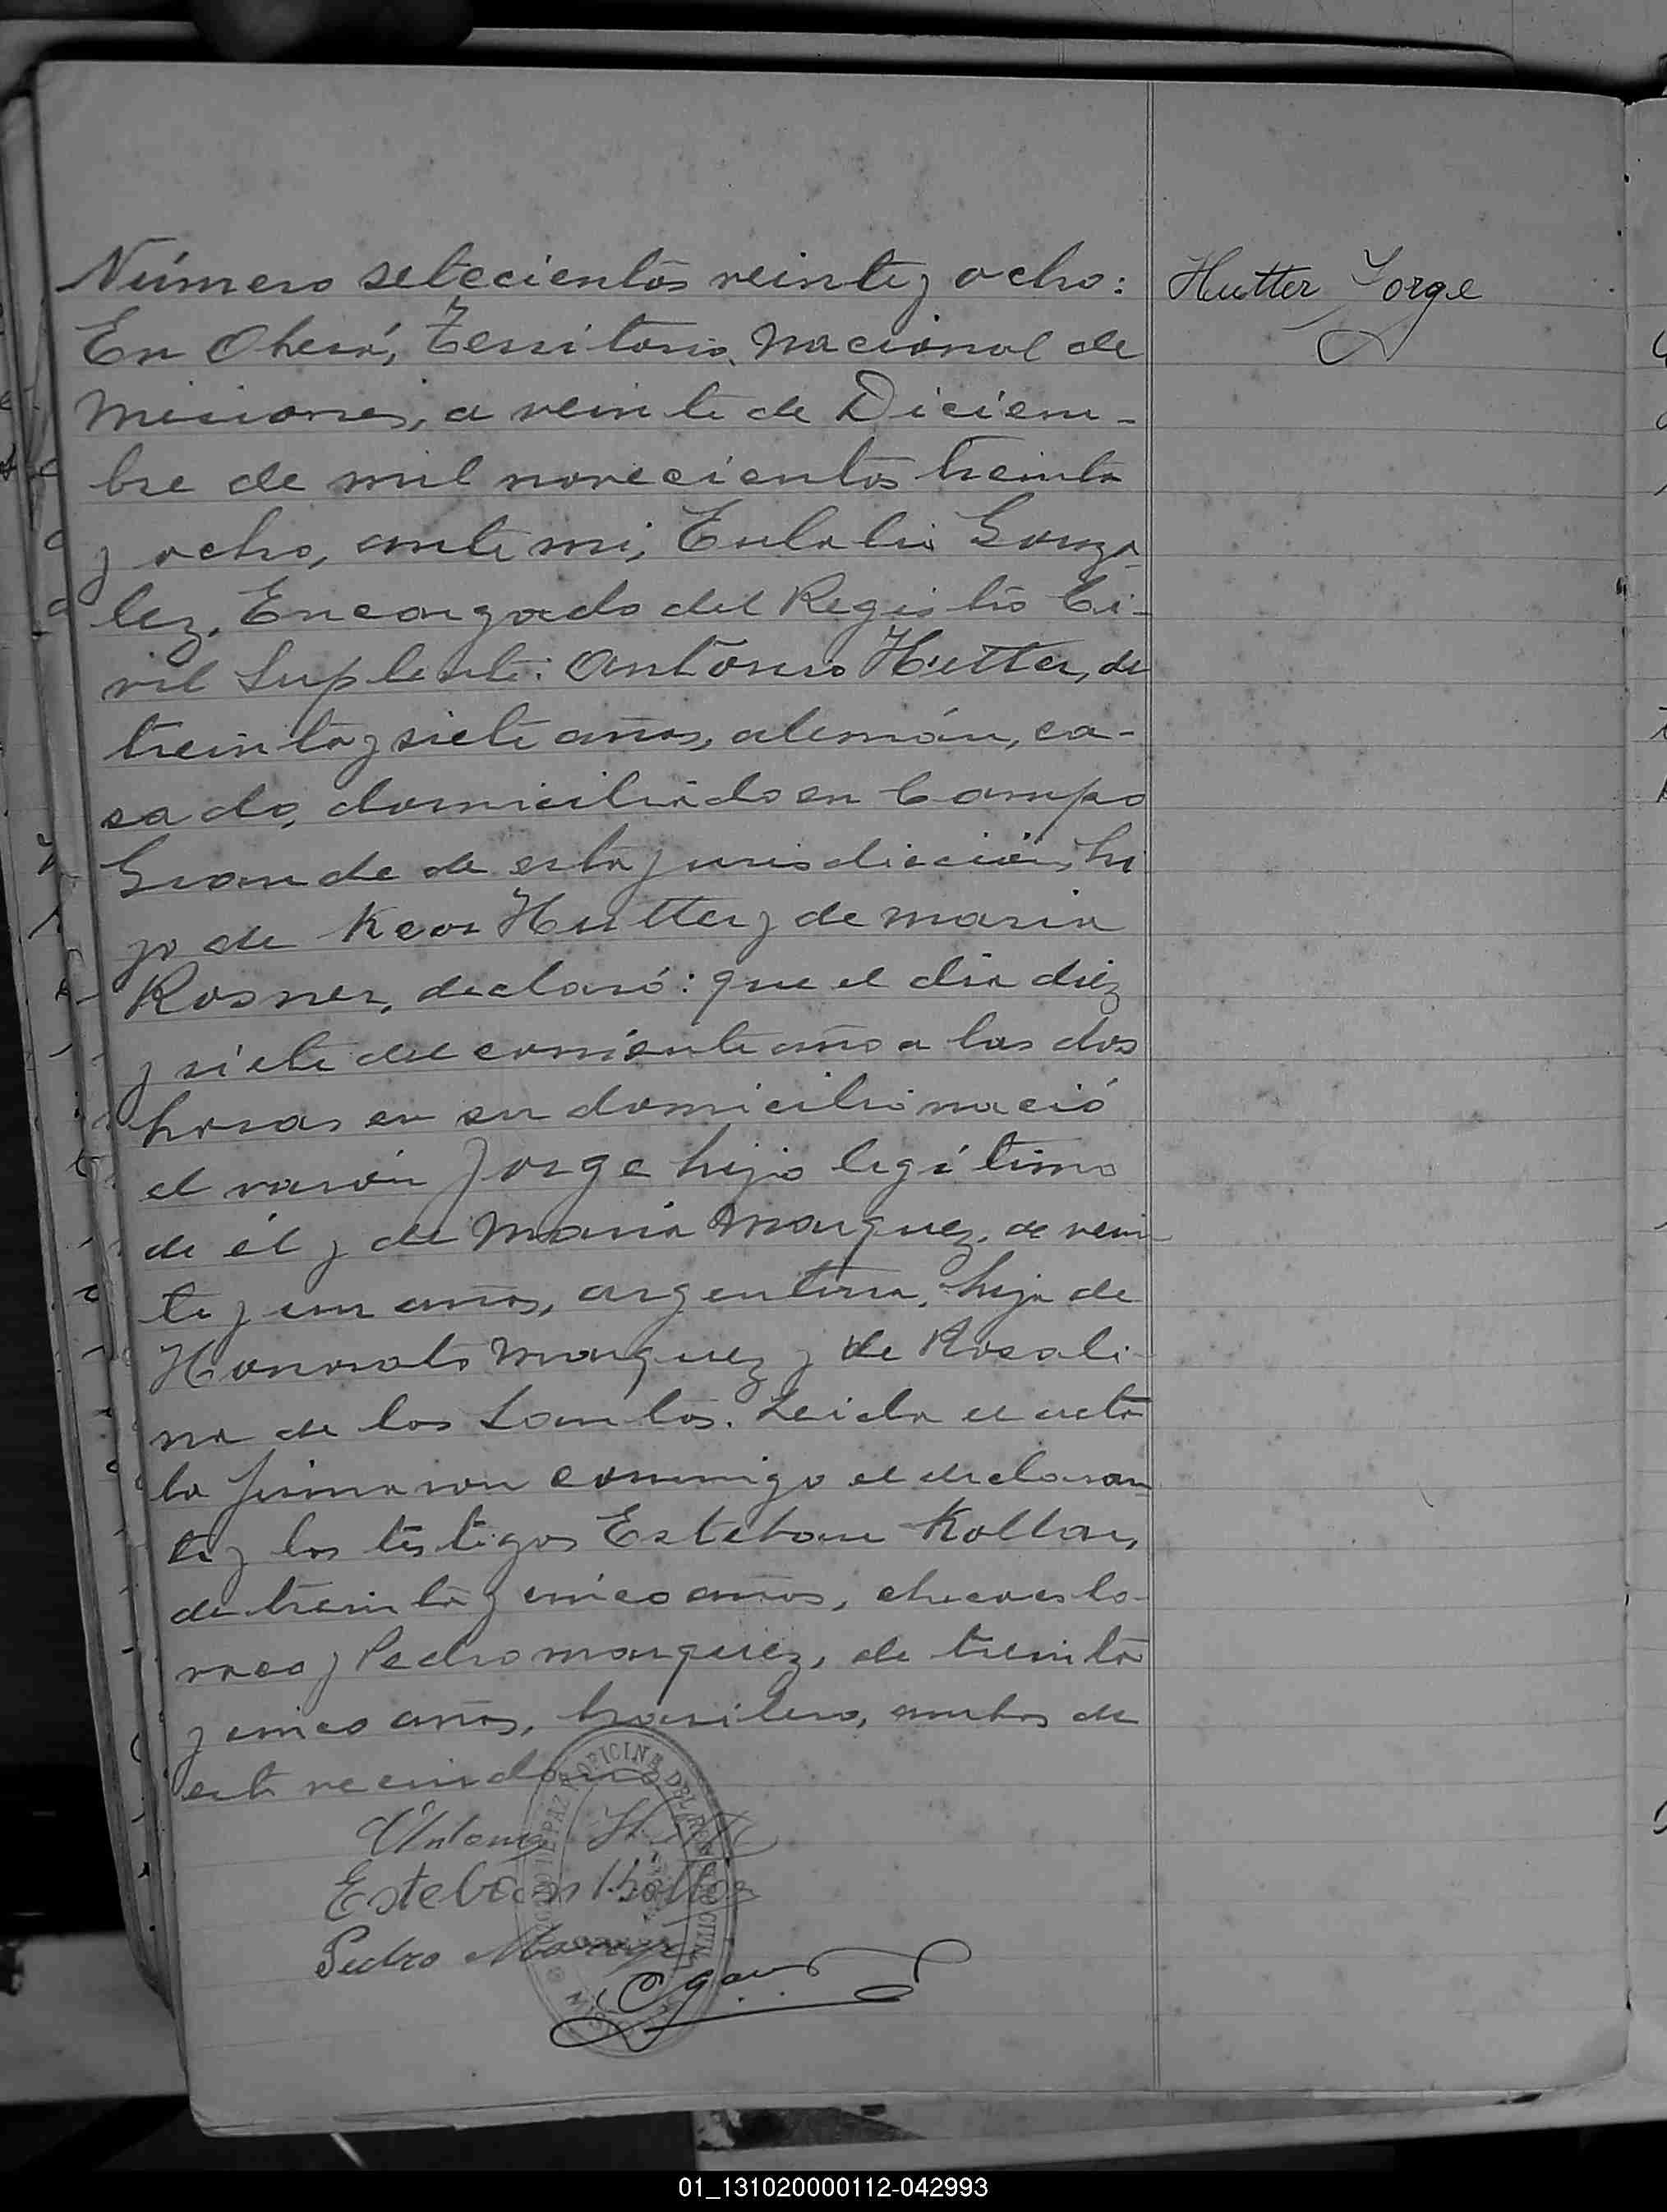 Número setecientos veinte y ocho:
Hutter Jorge
En Oberá, Territorio Nacional de
Misiones, a veinte de Diciem-
bre de mil novecientos treinta
y ocho, ante mi, Eulalio Gonza-
lez, Encargado del Registro Ci-
vil Suplente: Antonio Hutter, de
treinta y siete años, alemán, ca-
sado, domiciliado en Campo
Grande de esta jurisdicción, hi
jo de Hutter y de Maria
Rosner, declaró: que el dia diez
y siete del corriente año a las dos
horas en su domicilio nació
el varón Jorge hijo legítimo
de él y de Maria Marquez, de vein-
te y un años, argentina, hija de
Honorato Marquez y de Rosali-
na de los Santos. Leida el acta
la firmaron conmigo el declaran
te y los testigos Esteban Kollar,
de treinta y cinco años, checoeslo-
vaco y Pedro Marquez, de treinta
y cinco años, brasilero, ambos de
este vecindario
Antonio
Esteban Kollar
Pedro
OFICINA DEL REGISTRO CIVIL
JUZGADO DE PAZ
01_131020000112-042993